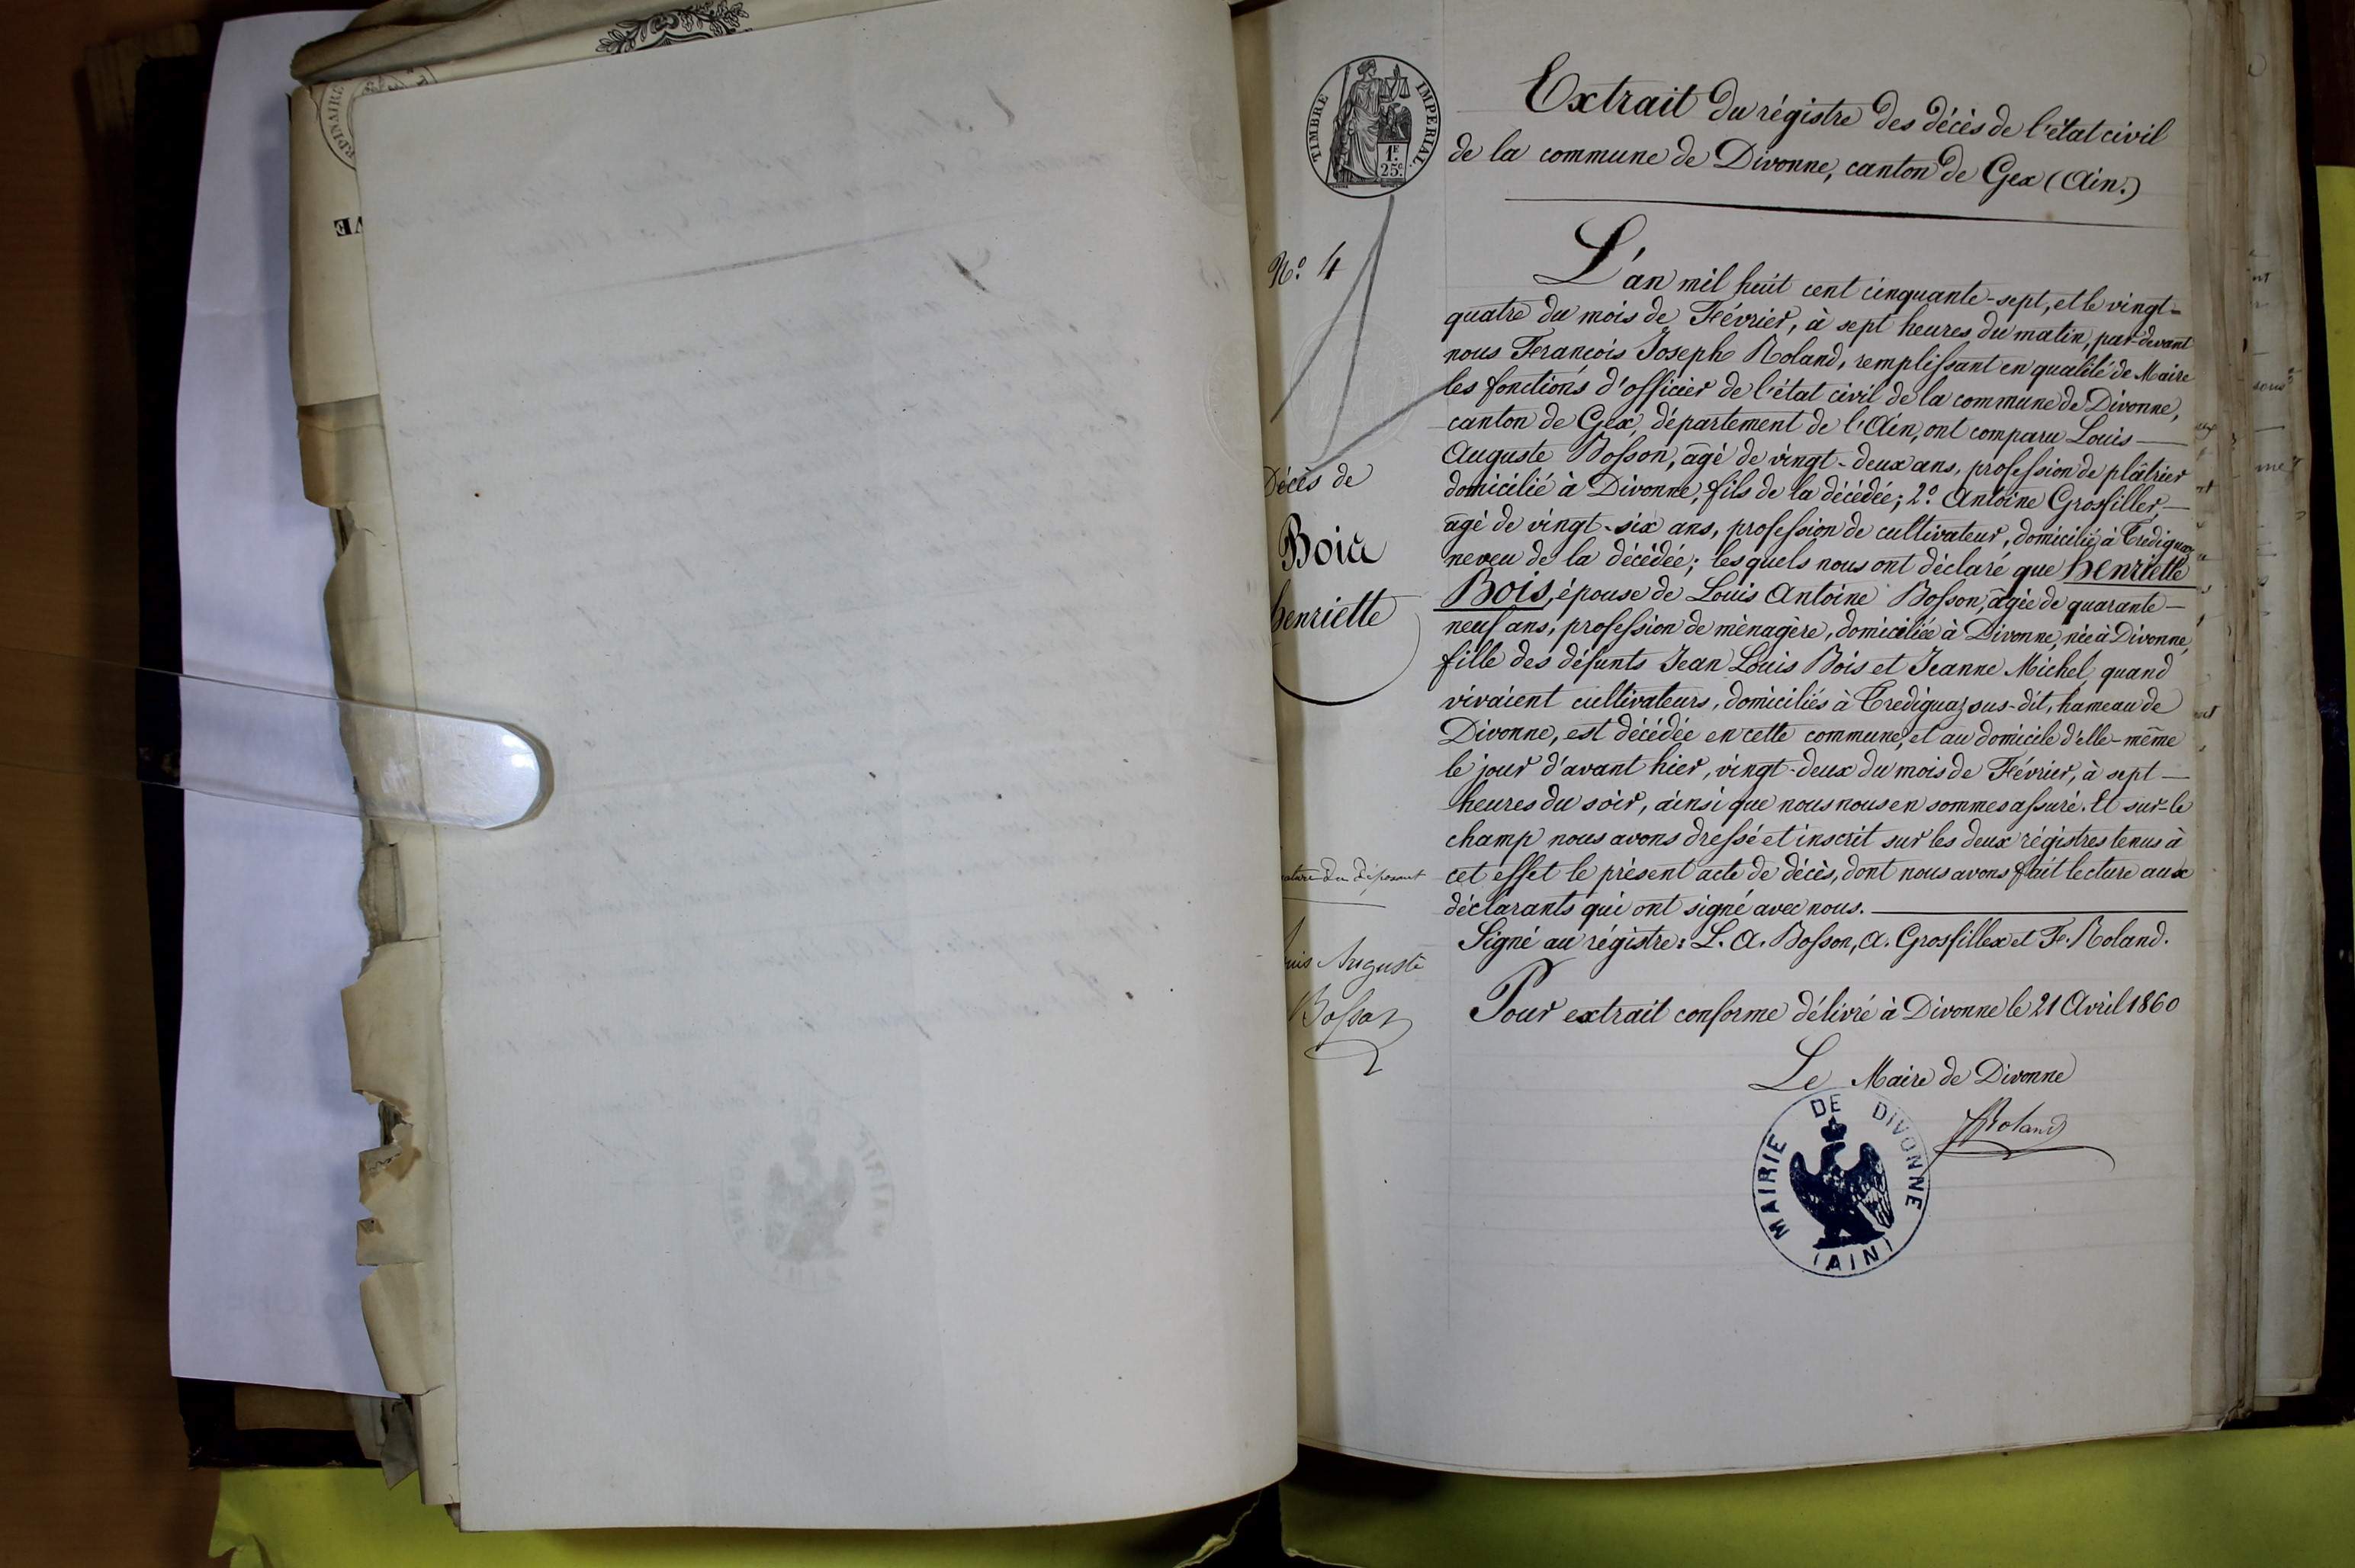 TIMBRE IMPERIAL.
1F.
25c.
Extrait du régistre des décès de l'état civil
de la commune de Divonne, canton de Gex (Ain.)
N.º 4
Décès de
Bois
henriette
L'an mil huit cent cinquante-sept, et le vingt-
quatre du mois de Février, à sept heures du matin, par-devant
nous François Joseph Roland, remplissant en qualité de Maire
les fonctions d'officier de l'état civil de la commune de Divonne,
canton de Gex, département de l'Ain, ont comparu Louis —
Auguste Bosson, âgé de vingt-deux ans, profession de plâtrier
domicilié à Divonne, fils de la décédée; 2.º Antoine Grosfillex, —
âgé de vingt-six ans, profession de cultivateur, domicilié à Trediguaz
neveu de la décédée; lesquels nous ont déclaré que henriette
Bois, épouse de Louis Antoine Bosson, âgée de quarante —
neuf ans, profession de ménagère, domiciliée à Divonne, née à Divonne,
fille des défunts Jean Louis Bois et Jeanne Michel, quand
vivaient cultivateurs, domiciliés à Trediguaz sus-dit, hameau de
Divonne, est décédée en cette commune, et au domicile d'elle-même
le jour d'avant hier, vingt-deux du mois de Février, à sept —
heures du soir, ainsi que nous nous en sommes assuré. Et sur-le
champ nous avons dressé et inscrit sur les deux régistres tenus à
cet effet le présent acte de décès, dont nous avons fait lecture aux
déclarants qui ont signé avec nous. —
Signé au régistre: L. A. Bosson, A. Grosfillex et F. Roland.
Pour extrait conforme délivré à Divonne le 21 Avril 1860
Le Maire de Divonne
FRoland
MAIRIE DE DIVONNE
(AIN)
du déposant
Auguste
Bosson